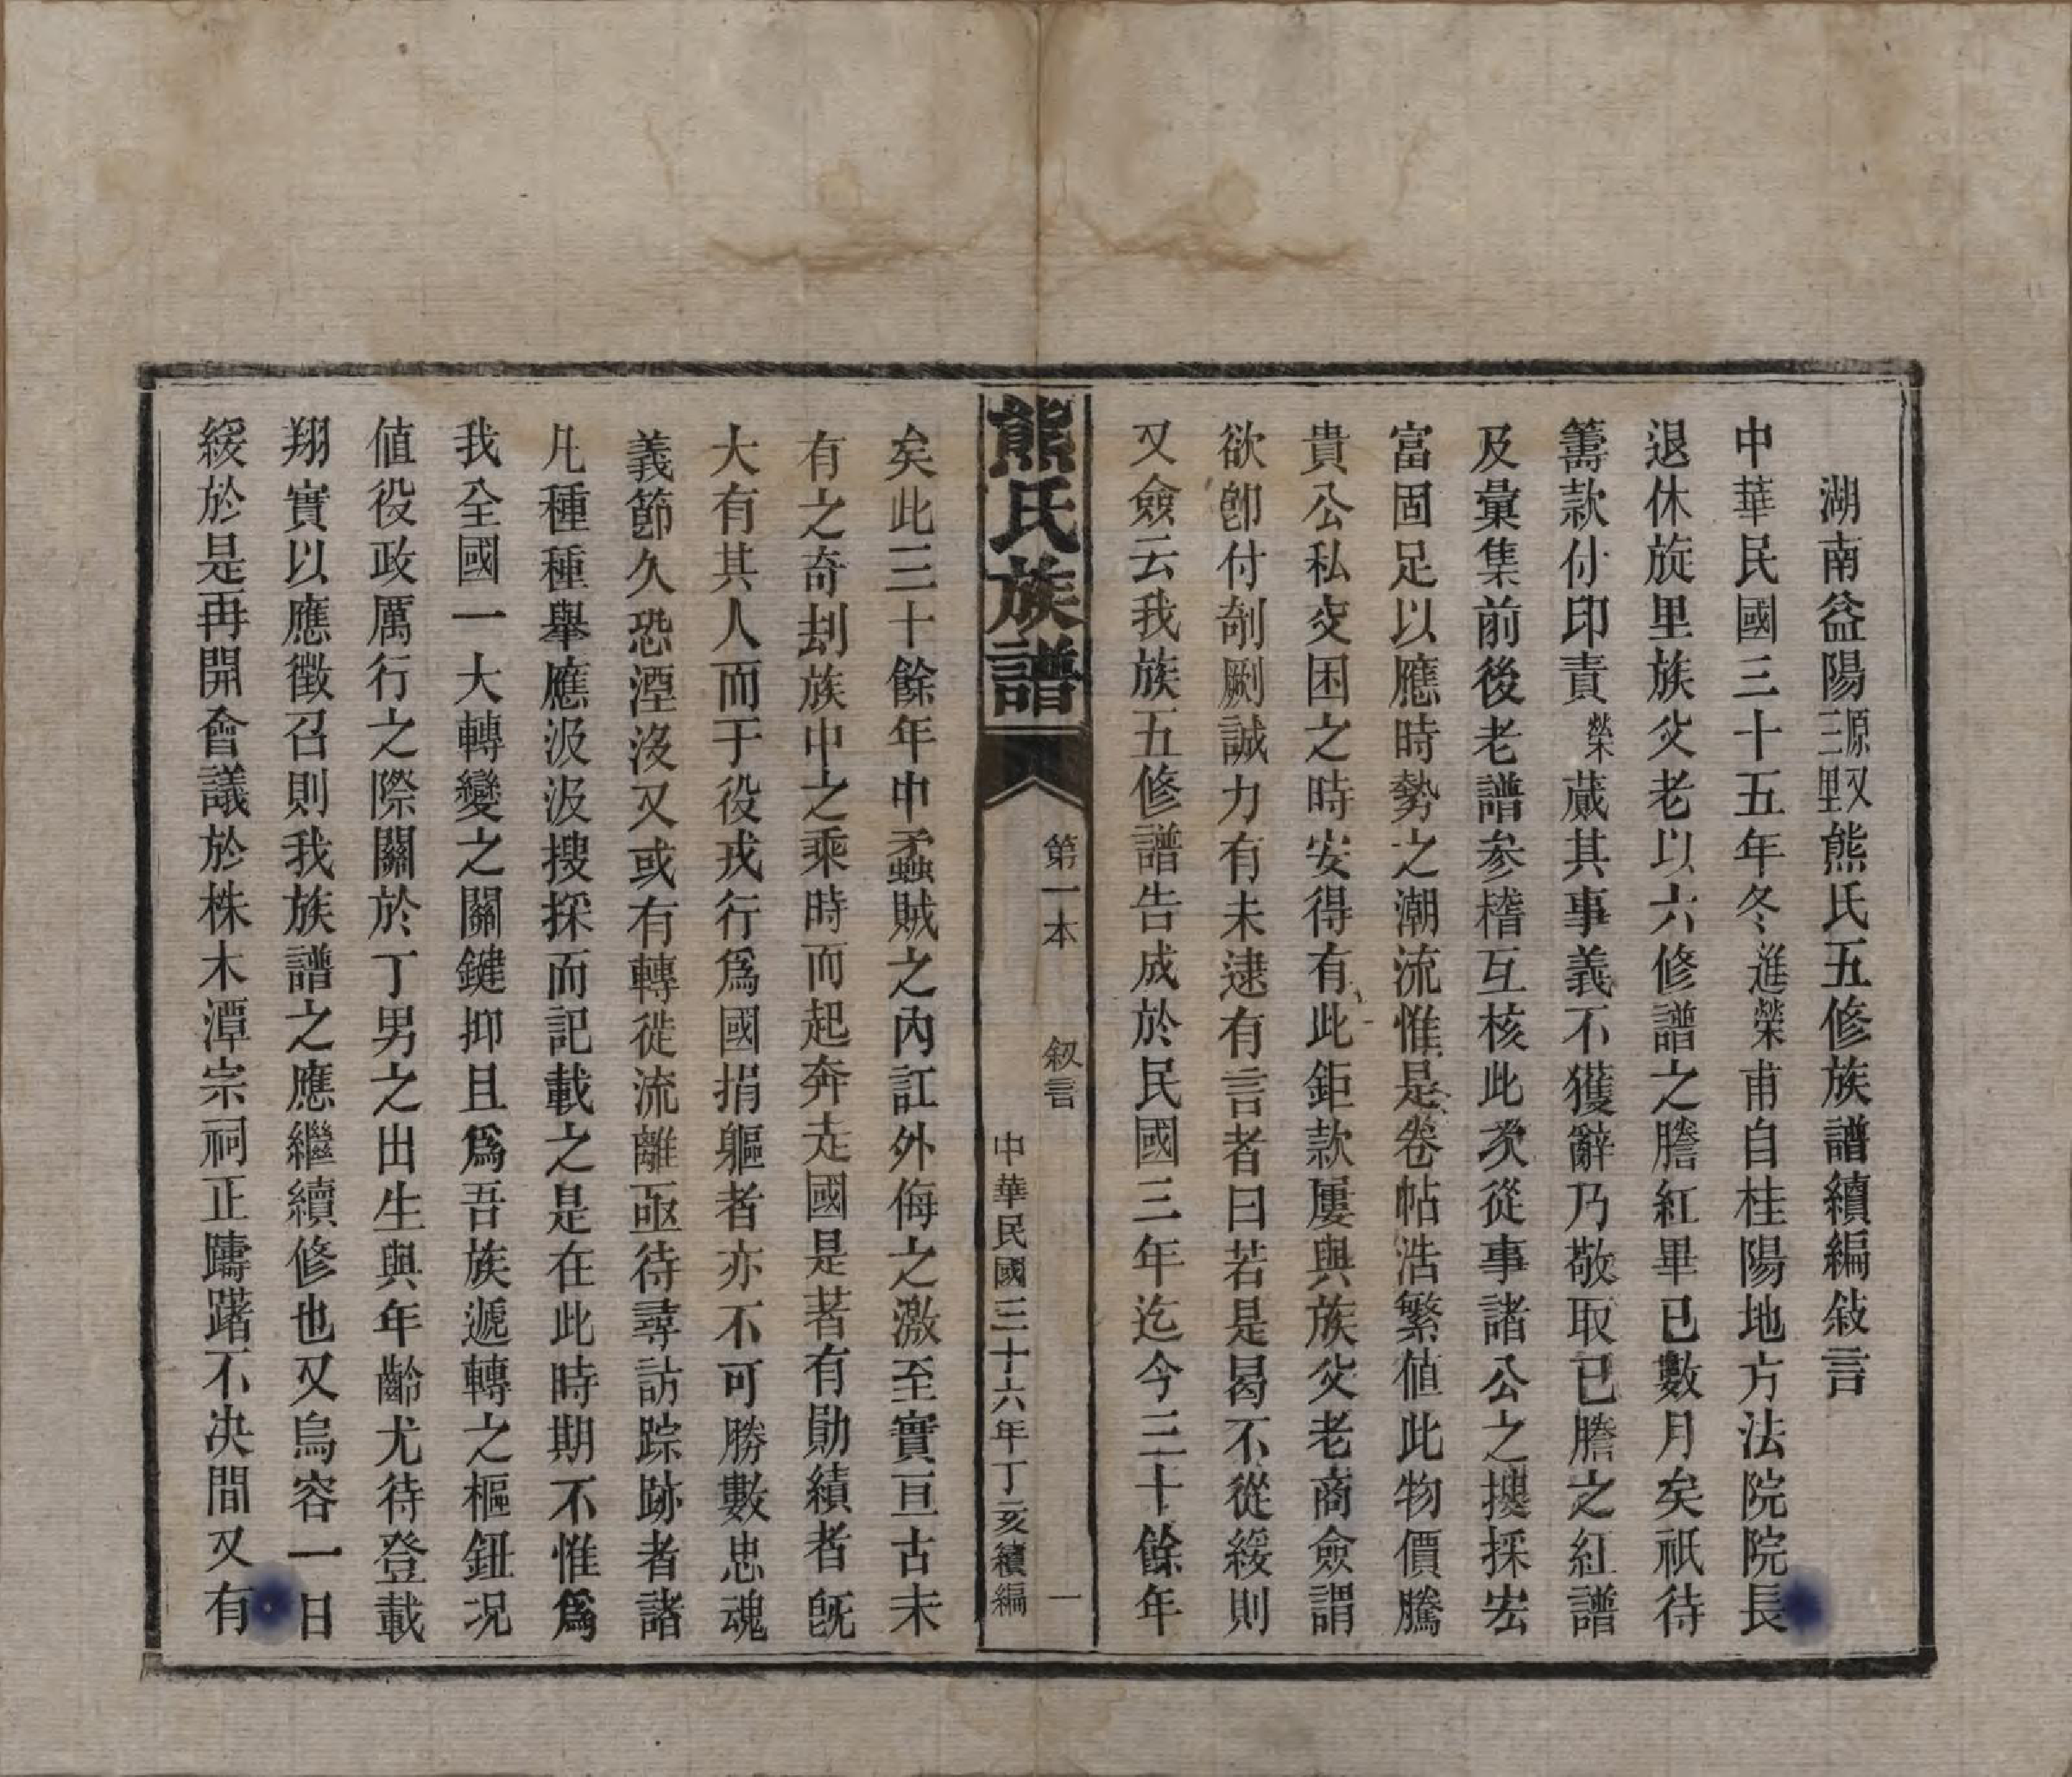 湖南益陽三里原又熊氏五修族譜續編敍言
中華民國三十五年冬進榮甫自桂陽地方法院院長
退休旋里族父老以六修譜之謄紅畢已數月矣祇待
籌款付印責榮蕆其事義不獲辭乃敬取已謄之紅譜
及彙集前後老譜参稽互核此次從事諸公之摟採宏
富固足以應時勢之潮流惟是卷帖浩繁値此物價騰
貴公私交困之時安得有此鉅款屢與族父老商僉謂
欲卽付剞劂誠力有未逮有言者曰若是曷不從緩則
又僉云我族五修譜告成於民國三年迄今三十餘年
熊氏族譜
第一本 叙言 一
中華民國三十六年丁亥續編
矣此三十餘年中蟊賊之內訌外侮之激至實亘古未
有之奇刦族中之乘時而起奔走國是著有勛績者旣
大有其人而于役戎行爲國捐軀者亦不可勝數忠魂
義節久恐湮沒又或有轉徙流離亟待尋訪踪跡者諸
凡種種舉應汲汲搜採而記載之是在此時期不惟爲
我全國一大轉變之關鍵抑且爲吾族遞轉之樞鈕况
値役政厲行之際關於丁男之出生與年齡尤待登載
翔實以應徵召則我族譜之應繼續修也又烏容一日
緩於是再開會議於株木潭宗祠正躊躇不决間又有